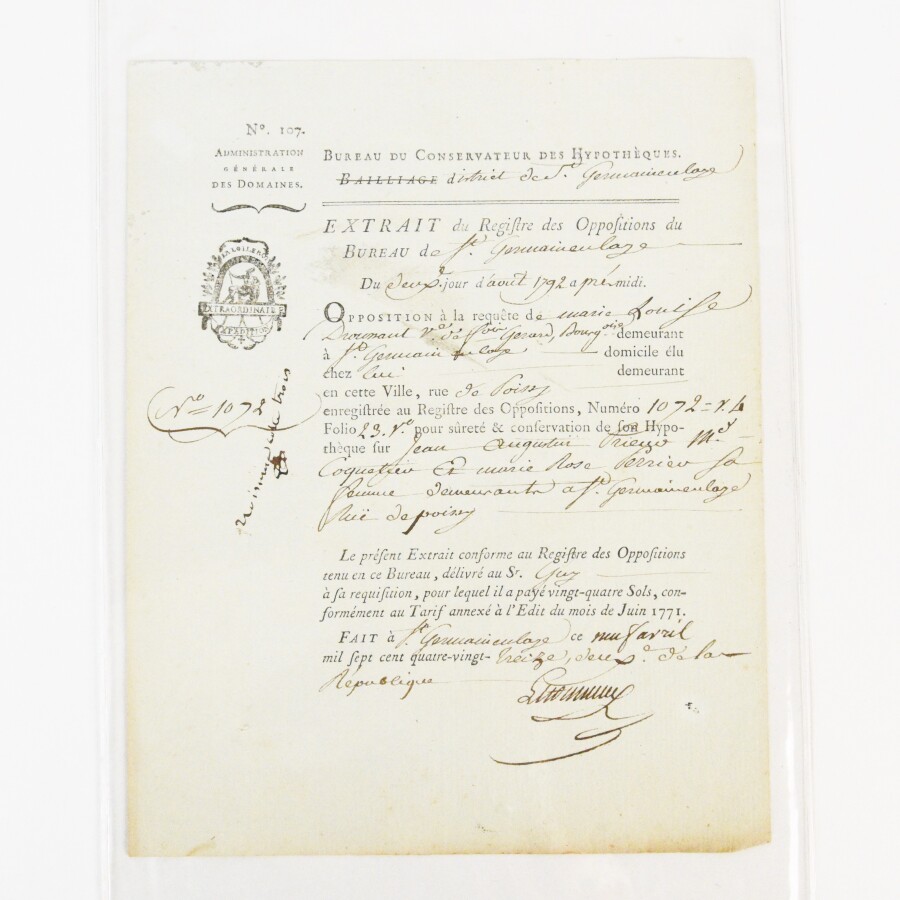 N°. 107.
ADMINISTRATION
GÉNÉRALE
DES DOMAINES.
BUREAU DU CONSERVATEUR DES HYPOTHÈQUES.
BAILLIAGE district de St. Germainenlaye
EXTRAIT du Regiſtre des Oppoſitions du
BUREAU de St. Germainenlaye
Du deuxe. jour d'aout 1792 a près midi.
EXTRAORDINAIRE
EXPÉDITION
OPPOSITION à la requête de marie Louiſſe
Ve. de Gerard, demeurant
à St. Germain enlaye domicile élu
chez lui demeurant
en cette Ville, rue de Poissy
N° = 1072
enregiſtrée au Regiſtre des Oppoſitions, Numéro 1072 = v. 4
Folio 23. v° pour ſûreté & conſervation de ſon Hypo-
thèque ſur Jean augustin Prieur Md.
Coquetier Et marie Rose Perrier Sa
femme demeurants a St. Germainenlaye
Rüe de poissy
Le préſent Extrait conforme au Regiſtre des Oppoſitions
tenu en ce Bureau, délivré au Sr. Guy
à ſa requiſition, pour lequel il a payé vingt-quatre Sols, con-
formément au Tarif annexé à l'Edit du mois de Juin 1771.
FAIT à St. Germainenlaye ce neuf avril
mil ſept cent quatre-vingt-treize, deuxe. de la
République